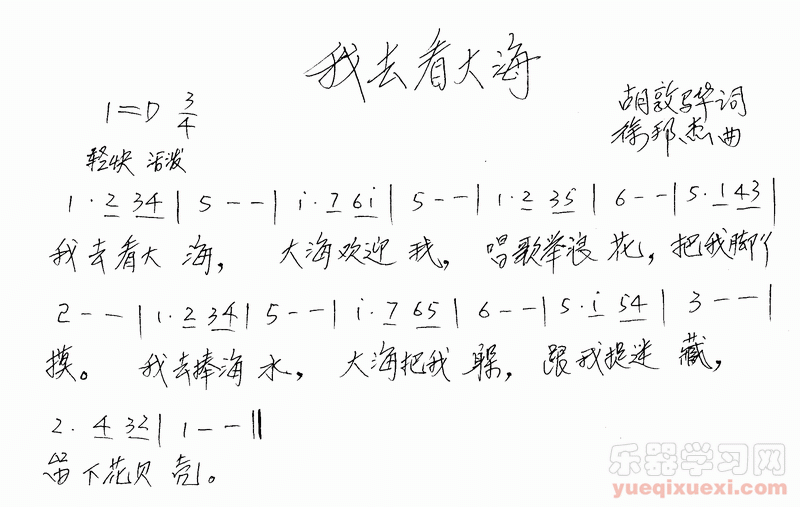 我去看大海
1=D 3/4
胡敦骅词
徐邦杰曲
轻快 活泼
1·2 34 | 5 - - | i·7 6i | 5 - - | 1·2 35 | 6 - - | 5·1 43 |
我去看大 海， 大海欢迎 我， 唱歌举浪 花，把我脚丫
2 - - | 1·2 34 | 5 - - | i·7 65 | 6 - - | 5·i 54 | 3 - - |
摸。 我去捧海 水， 大海把我 躲， 跟我捉迷 藏，
2· 4 32 | 1 - - ‖
留下花贝 壳。
乐器学习网
yueqixuexi.com